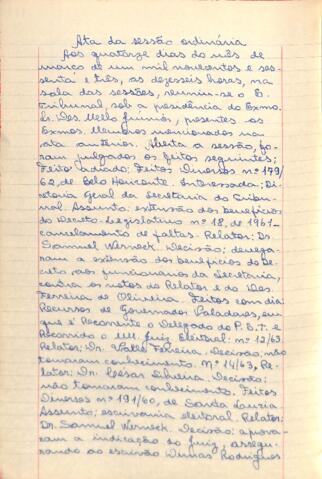 Ata da sessão ordinária
Aos quatorze dias do mês de
março de um mil novecentos e ses-
senta e três, às dezesseis horas, na
sala das sessões, reuniu-se o E.
Tribunal, sob a presidência do Exmo.
Sr. Des. Mello Junior, presentes os
Exmos. Membros mencionados na
ata anterior. Aberta a sessão, fo-
ram julgados os feitos seguintes;
Feito adiado: Feitos Diversos nº 179/
62, de Belo Horizonte. Interessada: Di-
retoria Geral da Secretaria do Tribu-
nal. Assunto: extensão dos benefícios
do Decreto-Legislativo nº 18, de 1961-
cancelamento de faltas. Relator: Dr.
Samuel Werneck. Decisão: denega-
ram a extensão dos benefícios do De-
creto aos funcionários da Secretaria,
contra os votos do Relator e do Des.
Ferreira de Oliveira. Feitos com dia:
Recursos de Governador Valadares, em
que é Recorrente o Delegado do P.S.T. e
Recorrido o MM. Juiz Eleitoral: nº 12/63.
Relator: Dr. Valle Ferreira. Decisão: não
tomaram conhecimento. Nº 14/63, Re-
lator: Dr. Cesar Silveira. Decisão:
não tomaram conhecimento. Feitos
Diversos nº 191/60, de Santa Luzia
Assunto: escrivania eleitoral. Relator:
Dr. Samuel Werneck. Decisão: aprova-
ram a indicação do Juiz, assegu-
rando ao escrivão Dumas Rodrigues